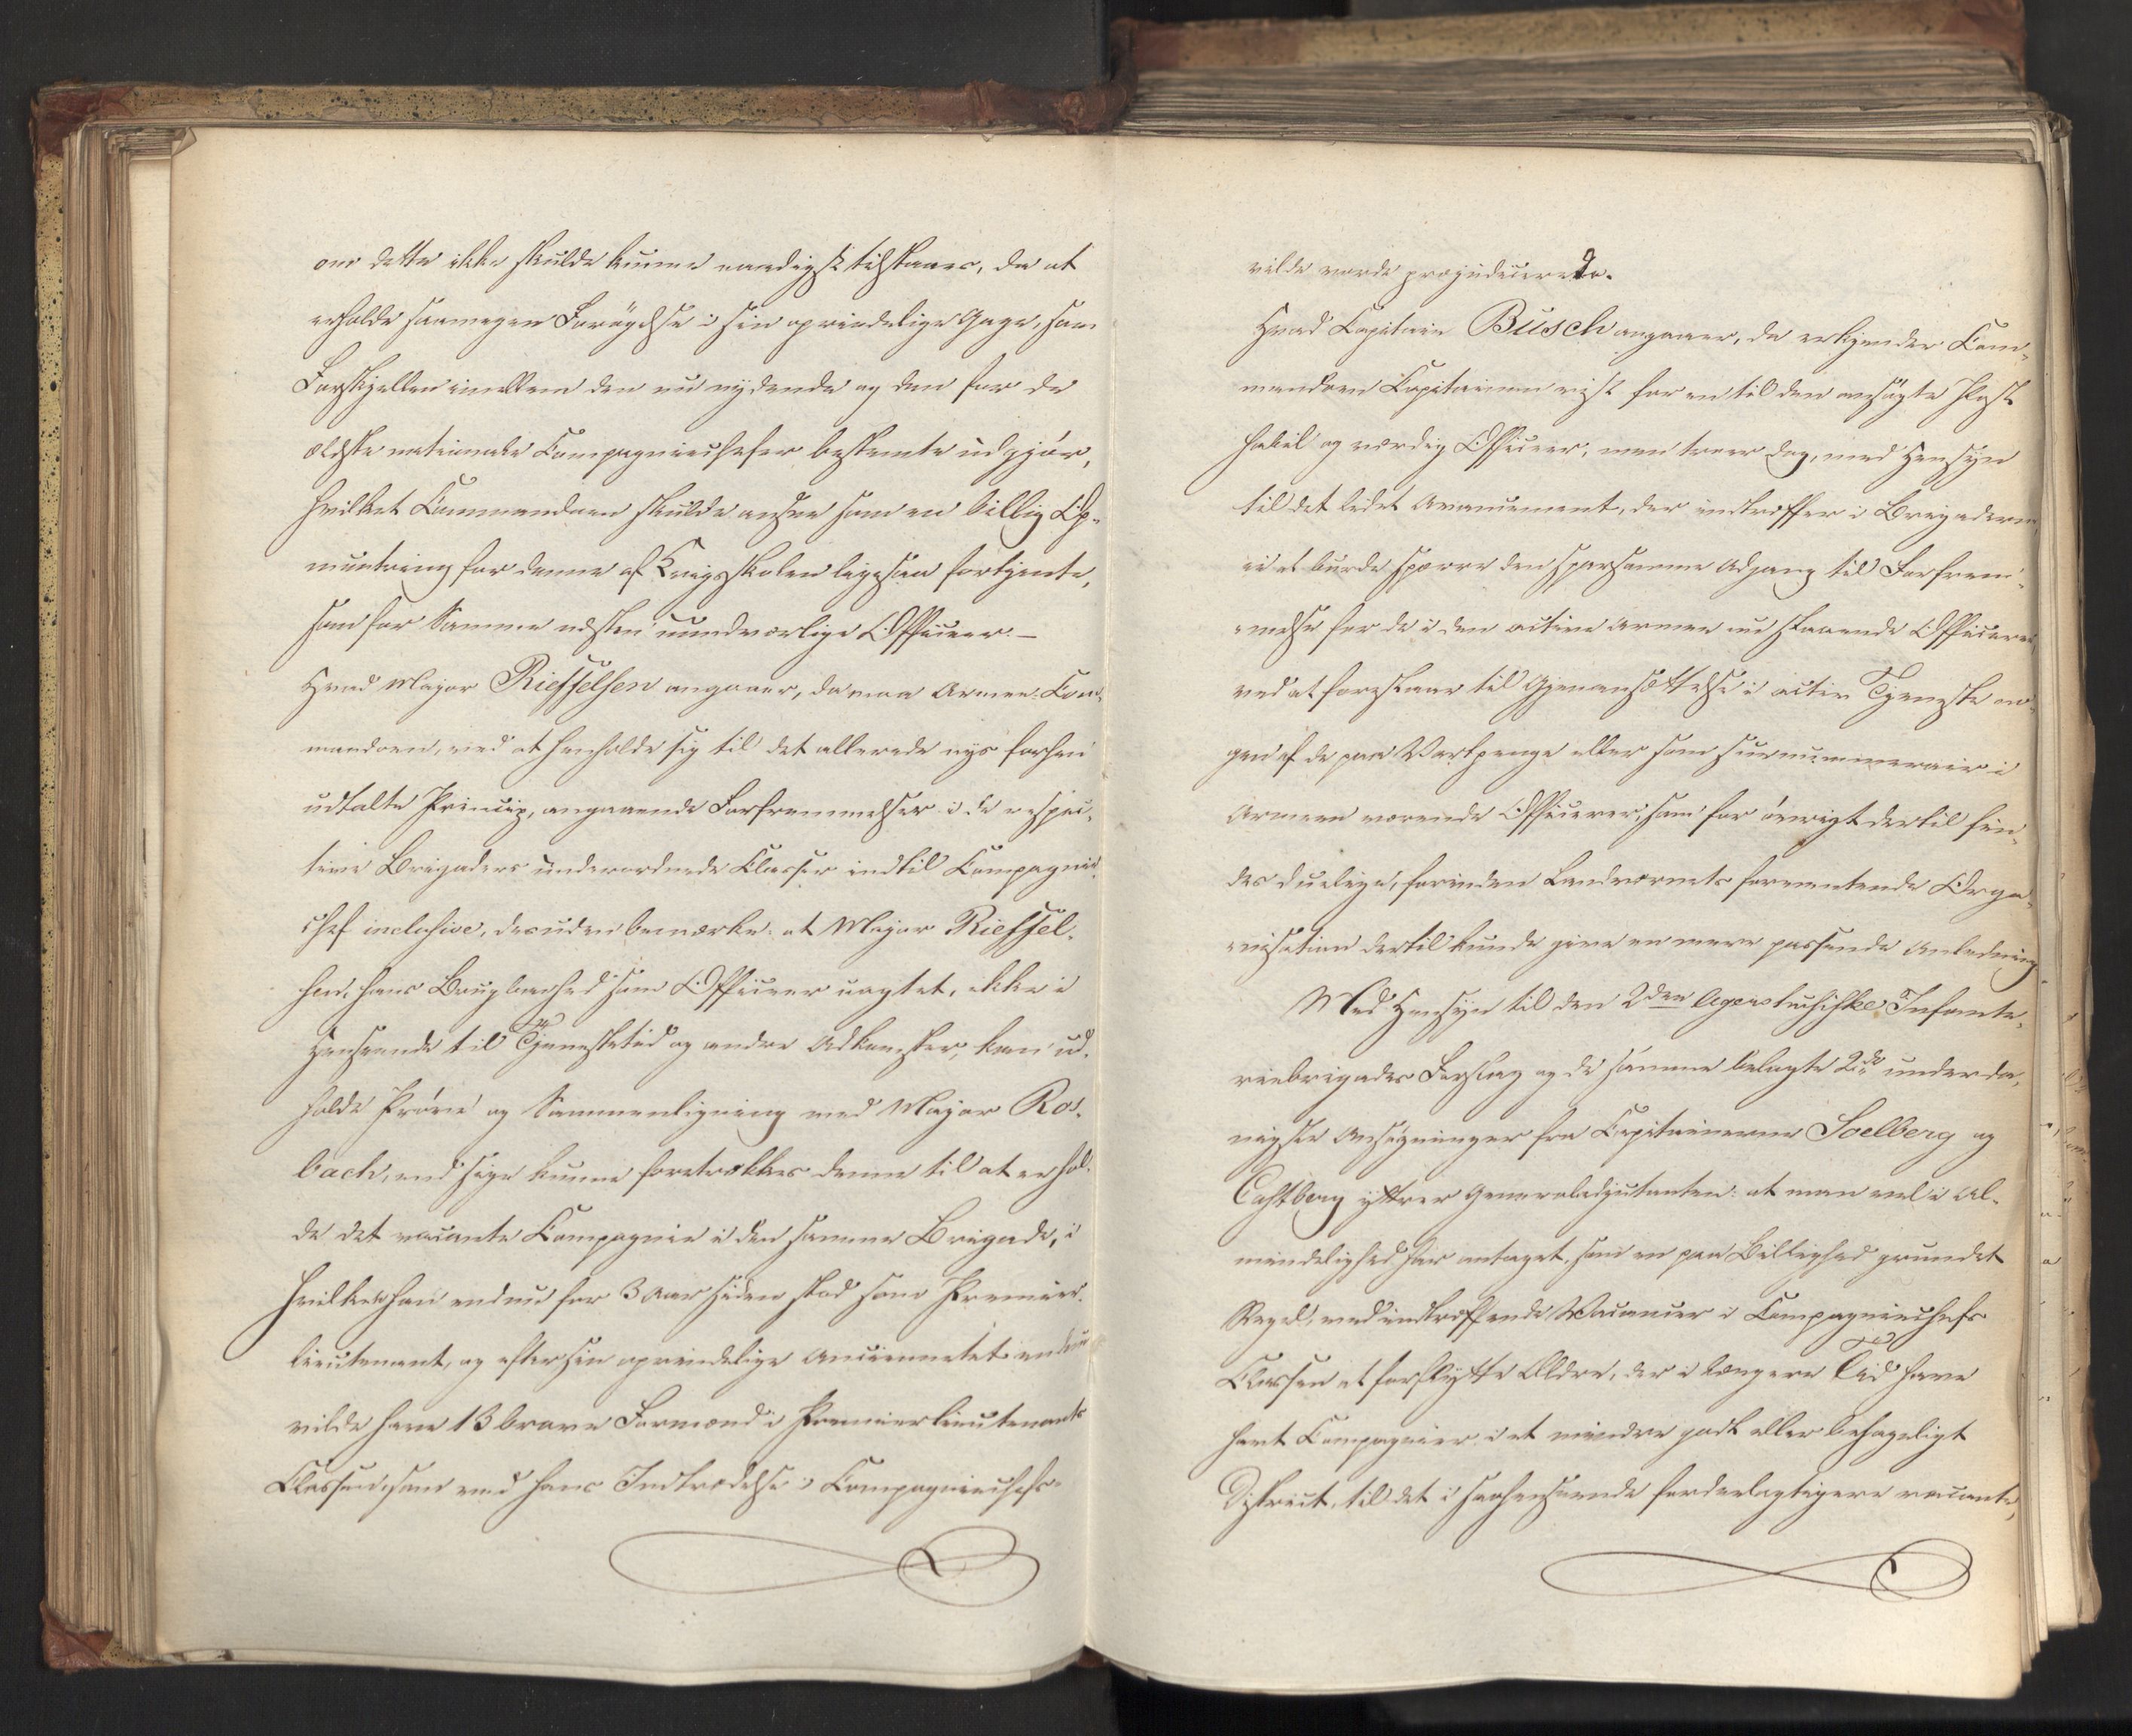 om dette ikke skulde kunne naadigst tilstaaes, da at
erholde saamegen Forøgelse i sin oprindelige Gage, som
Forskjellen imellem den nu nydende og den for de
ældste nationale Compagniechefer bestemte udgjør,
hvilket Commandoen skulde ansee som en billig Op-
muntring for denne af Krigsskolen ligesaa fortjente,
som for Samme næsten uundværlige Officeer. –
Hvad Major Rieffelsen angaaer, da maa Armee-Com-
mandoen, ved at henholde sig til det allerede nys forhen
udtalte Princip, angaaende Forfremmelser i de respec-
tive Brigaders underordnede Classer indtil Compagnie-
chef inclusive, desuden bemærke: at Major Rieffel-
sen, hans Brugbarhed som Officeer uagtet, ikke i
Henseende til Tjenestetid og andre Adkomster, kan ud-
holde Prøve og Sammenligning med Major Ros-
bach, end sige kunne foretrækkes denne til at erhol-
de det vacante Compagnie i den samme Brigade, i
hvilken han endnu for 3 Aar siden stod som Premier-
lieutenant, og efter sin oprindelige Anciennetet endnu
vilde have 13 brave Formænd i Premierlieutenants
Classen, som ved hans Indtrædelse i Compagniechefs-
vilde vorde præjudicerede.
Hvad Capitain Büsch angaaer, da erkjender Com-
mandoen Capitainen vist for en til den ansøgte Post
habil og værdig Officeer, men troer dog, med Hensyn
til det lidet Avancement, der indtreffer i Brigaderne,
ei at burde spærre den sparsomme Adgang til Forfrem-
melse for de i den active Armee nu staaende Officerer,
ved at foreslaae til Gjenansættelse i activ Tjeneste no-
gen af de paa Vartpenge eller som surnummerair i
Armeen værende Officerer, som for øvrigt dertil fin-
des duelige, forinden Landværnets forventende Orga-
nisation dertil kunde give en mere passende Anledning.
Med Hensyn til den 2den Agershuusiske Infante-
riebrigades Forslag og de samme bilagte 2de underda-
nigste Ansøgninger fra Capitainerne Soelberg og
Eghtberg yttrer Generaladjutanten: at man vel i Al-
mindelighed har antaget, som en paa Billighed grundet
Regel, ved indtreffende Vacancer i Compagniechefs
Classen at forflytte Ældre, der i længere Tid have
havt Compagnier i et mindre godt eller behageligt
District, til det i saahenseende fordeelagtigere vacante,